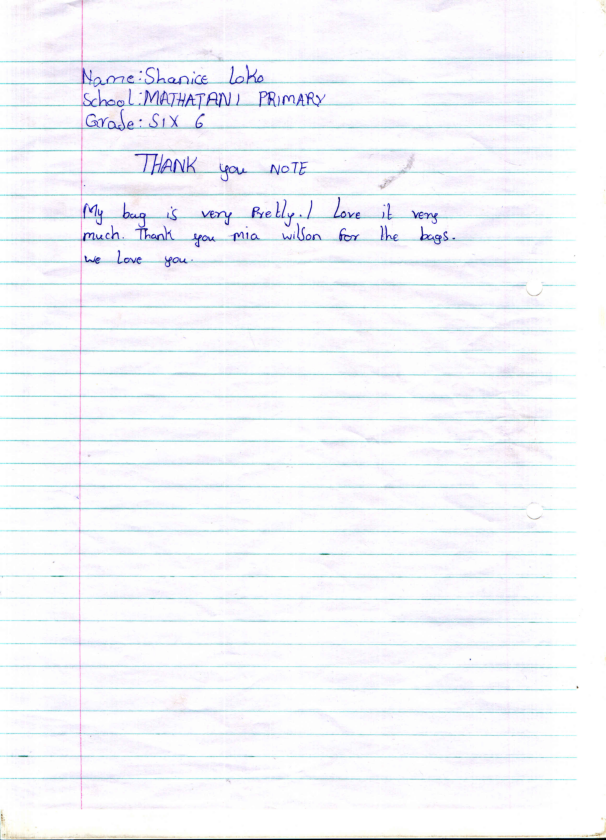 Name: Shanice Loko
School: MATHATANI PRIMARY
Grade: SIX 6
THANK you NOTE
My bag is very Pretty. I Love it very
much. Thank you mia wilson for the bags.
we Love you.